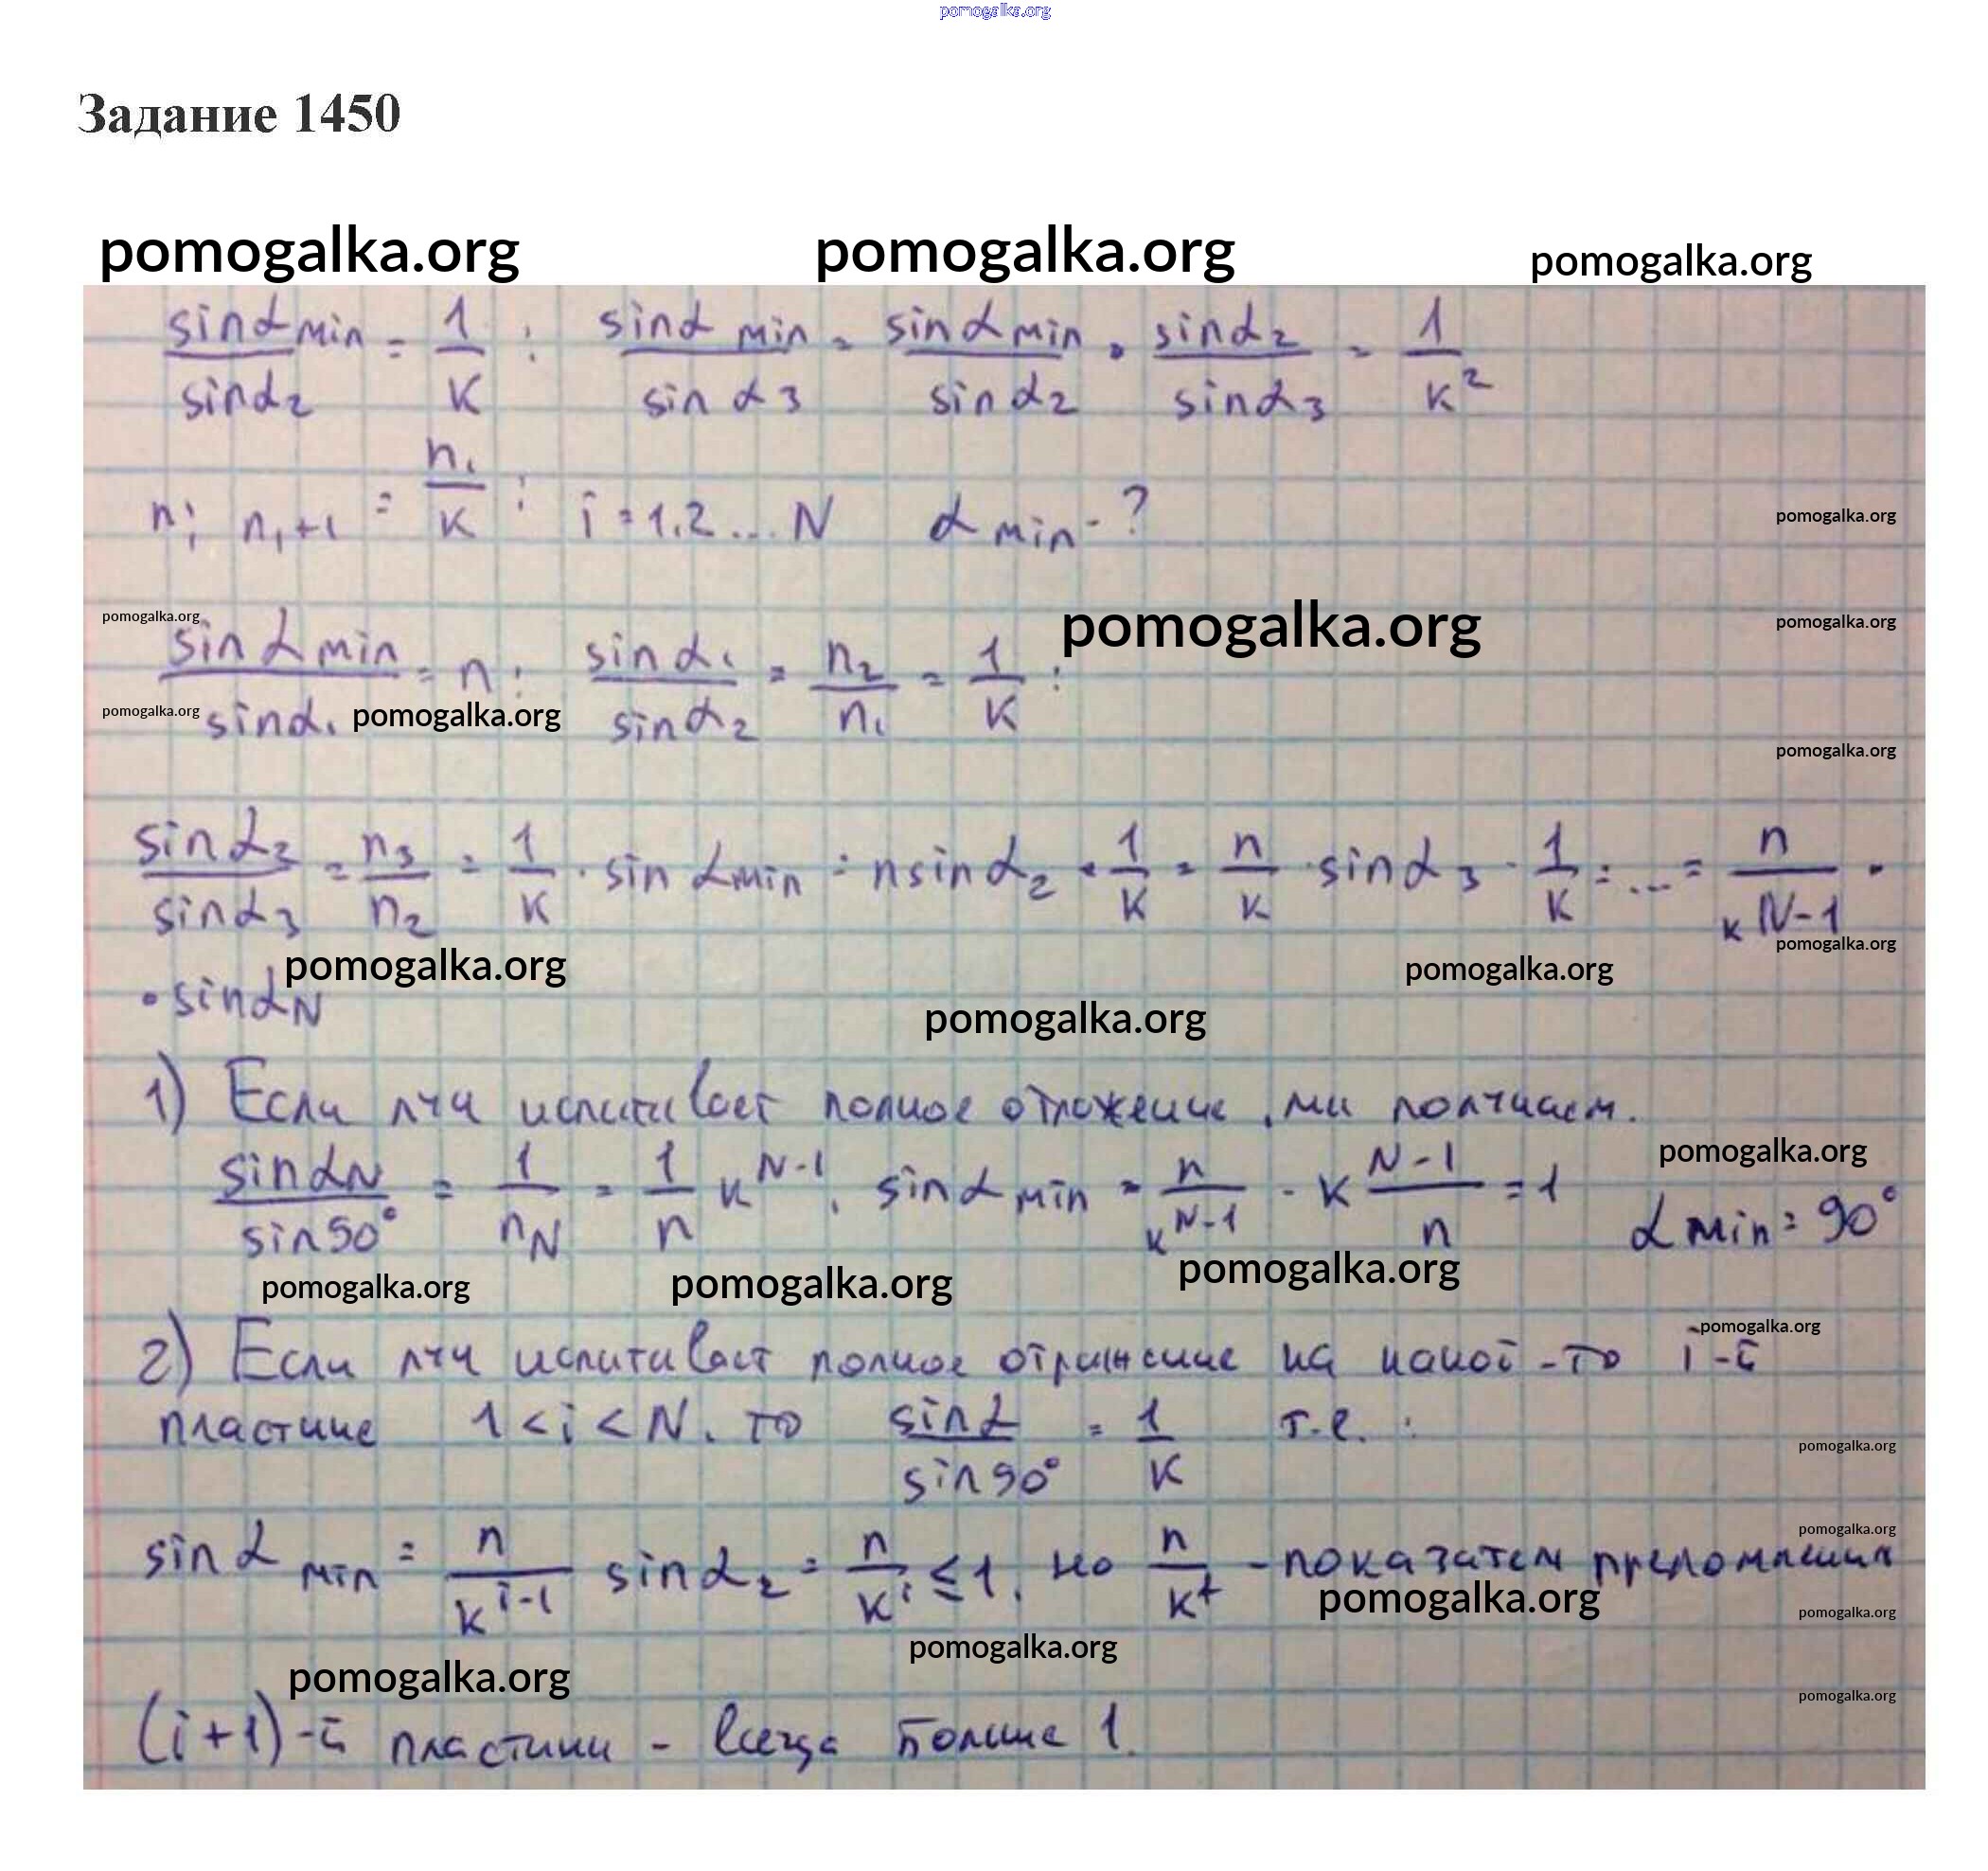 pomogalka.org
Задание 1450
pomogalka.org pomogalka.org pomogalka.org
sinα min / sinα2 = 1/K ; sinα min / sin α3 = sin α min / sin α2 · sinα2 / sinα3 = 1/K²
n; n1+1 = n1/K ; i = 1,2 ... N α min - ?
pomogalka.org
pomogalka.org pomogalka.org pomogalka.org
sin α min / sinα1 = n; sin α1 / sin α2 = n2/n1 = 1/K :
pomogalka.org pomogalka.org
pomogalka.org
sin α2 / sin α3 = n3/n2 = 1/K · sin α min = n sin α2 · 1/K = n/K · sin α3 · 1/K = ... = n / K^(N-1) ·
pomogalka.org pomogalka.org pomogalka.org
· sinαN
pomogalka.org
1) Если луч испытывает полное отложение, ми получаем.
pomogalka.org
sinαN / sin90° = 1/nN = 1/n K^(N-1), sin α min = n / K^(N-1) - K^(N-1) / n = 1 α min = 90°
pomogalka.org pomogalka.org pomogalka.org
pomogalka.org
2) Если луч испытывает полное отражение на какой-то i-й
пластине 1 < i < N. то sinα / sin90° = 1/K т.е. :
pomogalka.org
pomogalka.org
sinα min = n / K^(i-1) sinα2 = n / K^i ≤ 1, но n / K^t - показатем преломления
pomogalka.org pomogalka.org
pomogalka.org
pomogalka.org
pomogalka.org
(i+1)-й пластины - всегда больше 1.